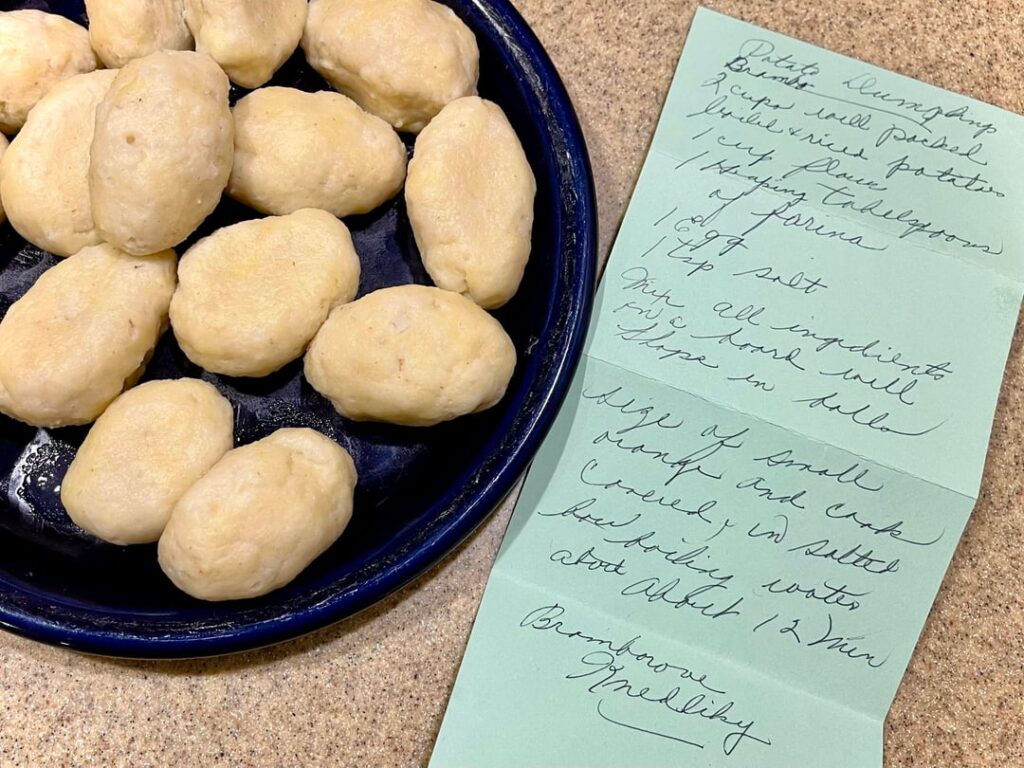 Potato Dumpling
2 cups well packed
boiled & riced potatoes
1 cup flour
1 Heaping Tabelspoons
of farina
1 Egg
1 tsp salt
Mix all ingredients
on a board well
Shape in balls
size of small
orange and cook
Covered, in salted
boiling water
about About 12 Min
Bramborove
Kneddliky